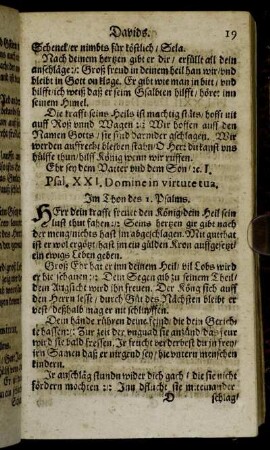 Davids. 19
Schenck/ er nimbts für köstlich/ Sela.
Nach deinem hertzen gibt er dir/ erfüllt all dein
anschläge :/: Groß freud in deinem heil han wir/ vnd
bleibt in Gott on klage. Er gibt wie man in bitt/ vnd
hilfft/ ich weiß daß er sein Gsalbten hilfft/ höret inn
seinem Himel.
Die krafft seins Heils ist mächtig stäts/ hofft nit
auff Roß vnnd Wagen :/: Wir hoffen auff den
Namen Gotts/ sie sind darnider gschlagen. Wir
werden auffrecht bleiben stahn/ O Herr dir kanst vns
hülffe thun/ hilff König wenn wir rüffen.
Ehr sey dem Vatter vnd dem Son/ ꝛc. I.
Psal. XXI. Domine in virtute tua.
Im Thon des 1. Psalms.
HErr dein krafft freuet den König/ dein Heil sein
lust thut fahen :/: Seins hertzen gir gibt nach
der meng/ nichts hast im abgeschlagen. Mit gutthat
ist er wol ergötzt/ hast im ein gülden Kron auffgesetzt/
ein ewigs Leben geben.
Groß Ehr hat er inn deinem Heil/ vil Lobs wird
er hie schauen :/: Den Segen gib zu seinem Theil/
dein Angsicht wird ihn freuen. Der König sich auff
den Herren lesst/ durch Güt des Nächsten bleibt er
vest/ deßhalb mag er nit schlipffen.
Dein hände rühren deine feind/ die dein Gerich-
te hassen :/: Zur zeit der vngnad sie anzünd/ das feur
wird sie bald fressen. Ir frucht verderbest du in frey/
irn Samen daß er nirgend sey/ hie vntern menschen
kindern.
Ir anschläg stunden wider dich gach/ die sie nicht
fördern mochten :/: Inn dflucht sie miteinander
D schlag/